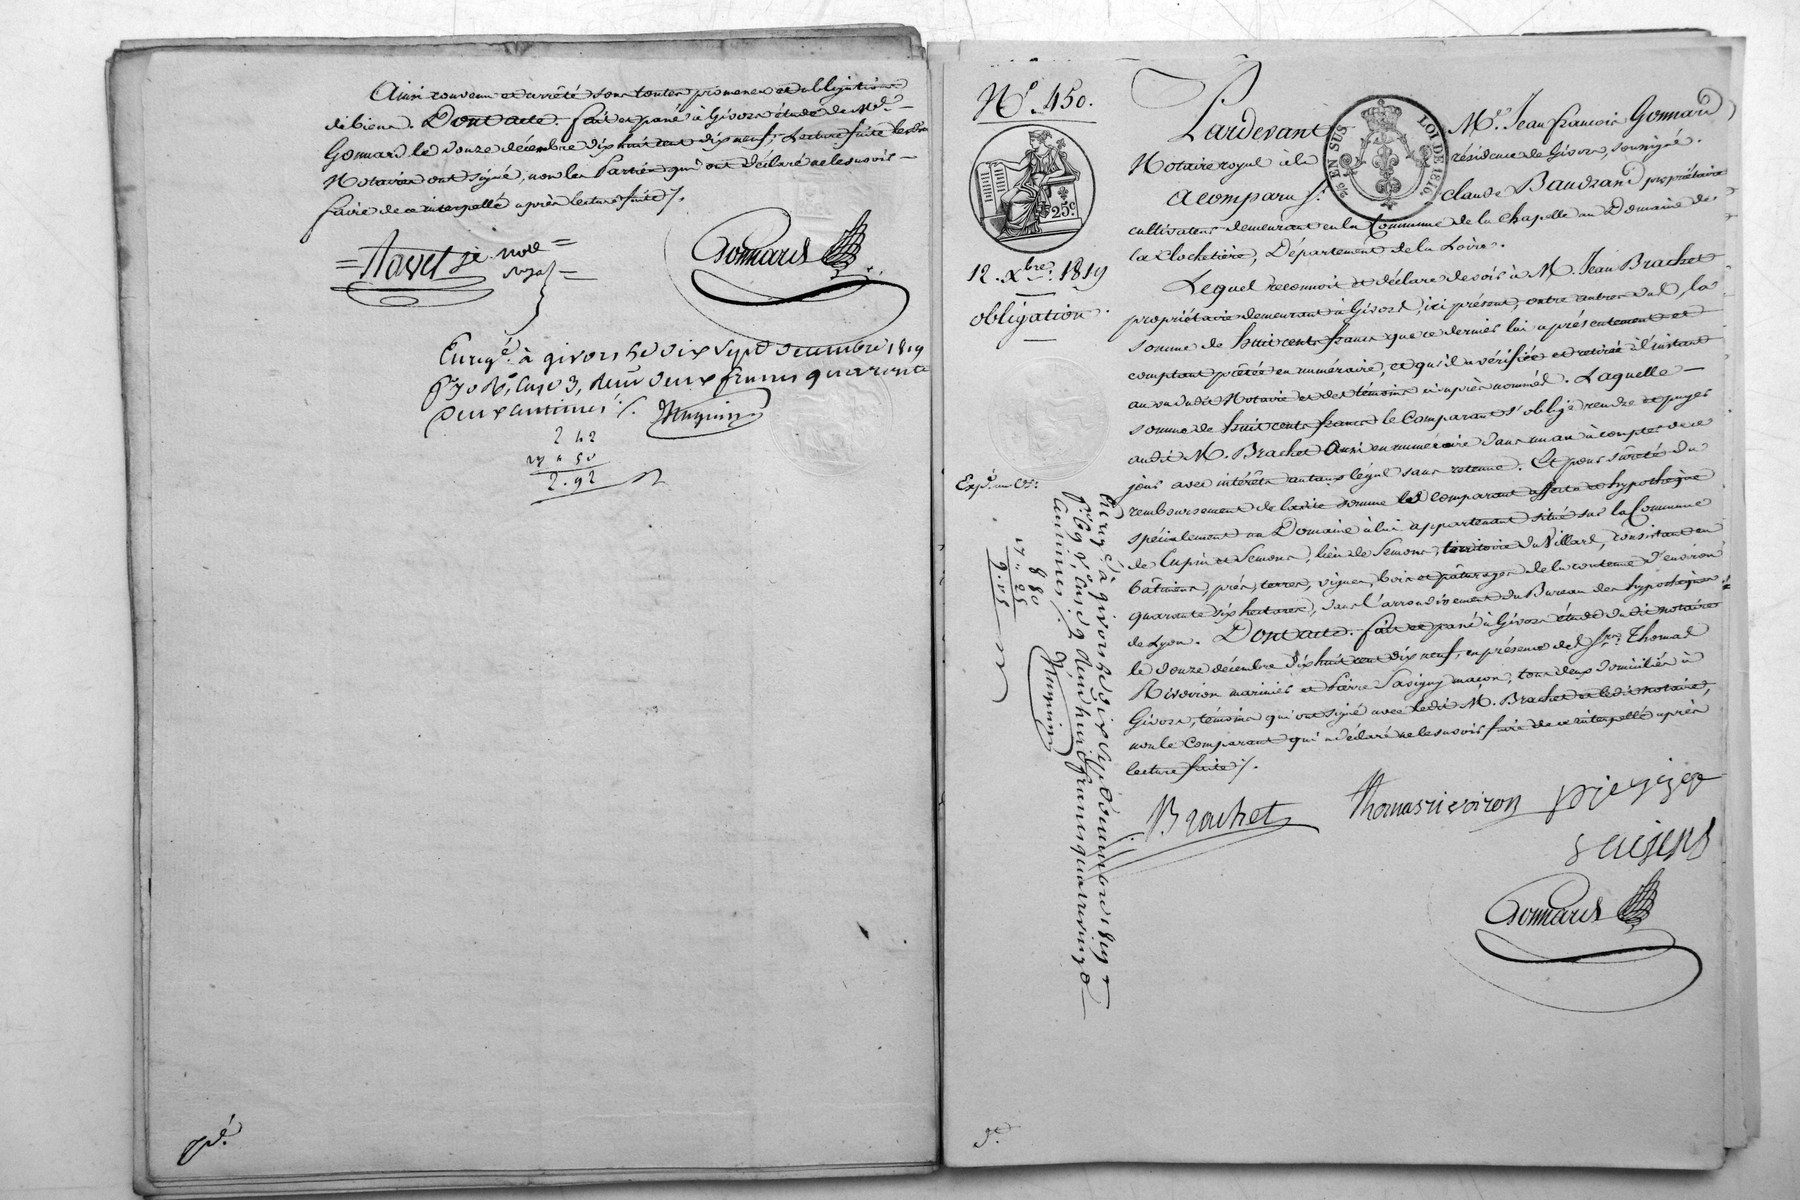 Ainsi convenu et arrêté sous toutes promesses et obligations
de biens. Dont acte. fait et passé à Givors étude de Md.
Gonnard le douze décembre dix huit cent dix neuf, Lecture faite les
Notaires ont signé, non les Parties qui ont déclaré ne le savoir
faire de ce interpellé après lecture faite /.
Havet
Gonnard
Enregé. à givors le dix sept décembre 1819
fo. 70 Ro. Case 3, reçu deux francs quarante
deux centimes /.
2 42
2. 92
No. 450.
25c
12. Xbre. 1819
obligation.
EN SUS
LOI DE 1816
Pardevant Me. Jean françois Gonnard
Notaire royal à la résidence de Givors, soussigné.
A comparu Sr. Claude Baudrand propriétaire
cultivateur demeurant en la Commune de la Chapelle au Domaine de
la Clochetière, Département de la Loire.
Lequel reconnoit et déclare devoir à M. Jean Brachet
propriétaire demeurant à Givors, ici présent, entre autres dues, la
somme de huit cents francs que ce dernier lui a présentement et
comptant prêtée en numéraire, et qu'il a vérifiée et retirée à l'instant
au vu dudit Notaire et des témoins ci après nommés. Laquelle
somme de huit cents francs le Comparant s'oblige rendre et payer
audit M. Brachet aussi en numéraire dans un an à compter de ce
jour avec intérêts au taux légal sans retenue. Et pour sûreté du
remboursement de ladite somme led. comparant affecte et hypothèque
spécialement un Domaine à lui appartenant situé sur la Commune
de Lupin et Semons, lieu de Semons, territoire du Villard, consistant en
bâtimens, prés, terres, vignes, bois et pâturages de la contenue d'environ
quarante dix hectares, dans l'arrondissement du Bureau des hypothèques
de Lyon. Dont acte. fait et passé à Givors étude du dit notaire
le douze décembre dix huit cent dix neuf, en présence des Srs. Thomas
Rivoiron marinier et Pierre Savigny maçon, tous deux domiciliés à
Givors, témoins qui ont signé avec ledit M. Brachet et ledit notaire,
non le Comparant qui a déclaré ne le savoir faire de ce interpellé après
lecture faite /.
Expé. au Cr.
Enregé. à givors le dix sept décembre 1819
fo. 69 Vo. Case 9 reçu huit francs quatre vingt
centimes /.
8 80
Brachet
Thomas rievoiron
Gonnard